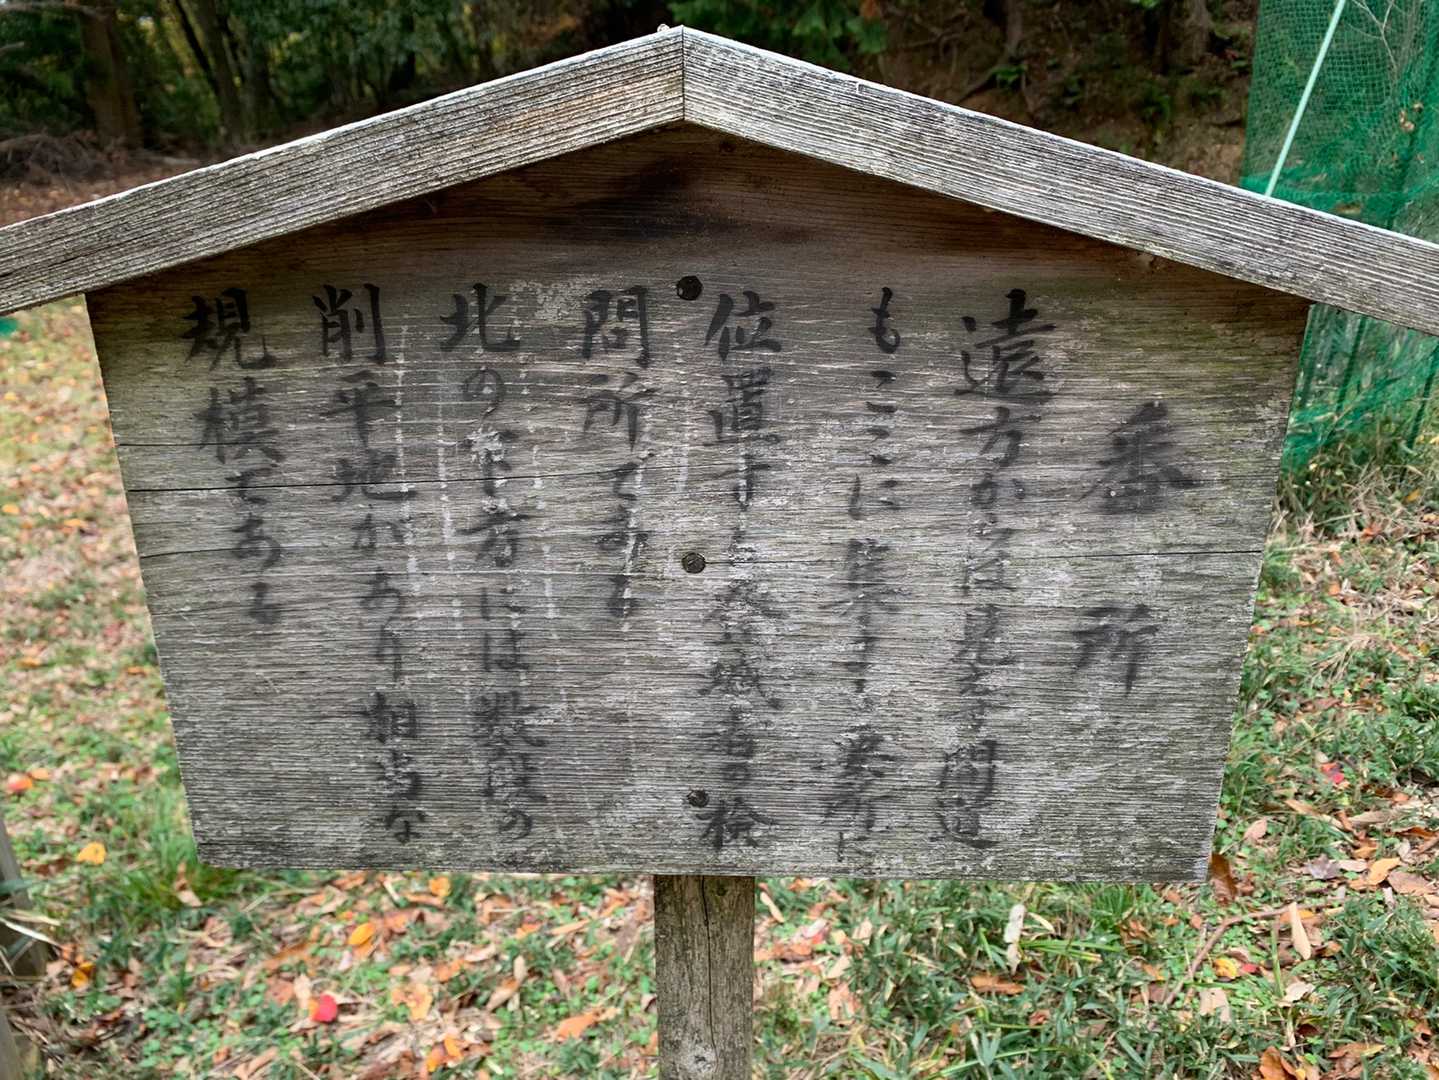 番所
遠方から見える間道
もここに集まり要所に
位置する入城者の検
問所である
北の下方には数段の
削平地があり相当な
規模である